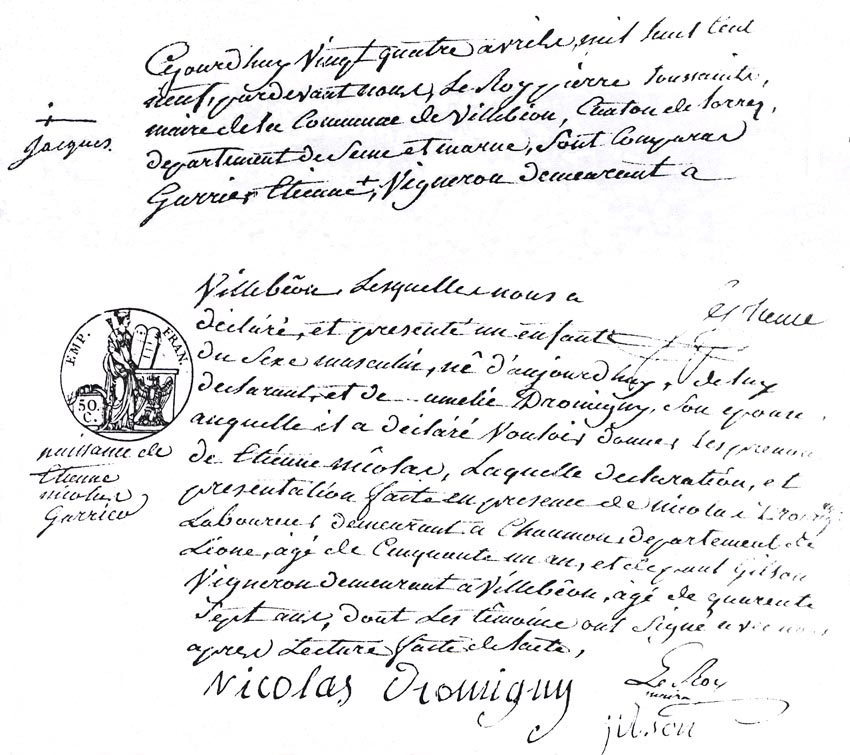 Cejourdhuy Vingt quatre avrile, mil huit Cent
neuf, pardevant nous, Le Roy pierre toussainte,
maire de la Commune de Villebéon, Canton de Lorrez,
+
Jacques.
departement de Seine et marne, sont Comparue
Garrier Etienne+, Vigneron demeurent a
Villebéon, Lesquelle nous a
déclaré, et presenté un enfante
du Sexe masculin, né d'aujourdhuy, de luy
declarant, et de amelie Dromigny, son epouse
auquelle il a déclaré Vouloir donner les prenom
de Etienne nicolas, Laquelle declaration, et
presentation faite en presence de nicolas Dromigny
Laboureur demeurant a Chaumon, departement de
Lione, agé de Cinquante un an, et de paul Gilson
Vigneron demeurant a Villebéon, agé de quarente
Sept ans, dont les témoine ont signé avec nous
apres Lecture faite de lacte,
EMP. FRAN.
50.
C.
naissance de
Etienne
nicolas
Garrico
Nicolas Dromigny
Le Roy
maire
jilson